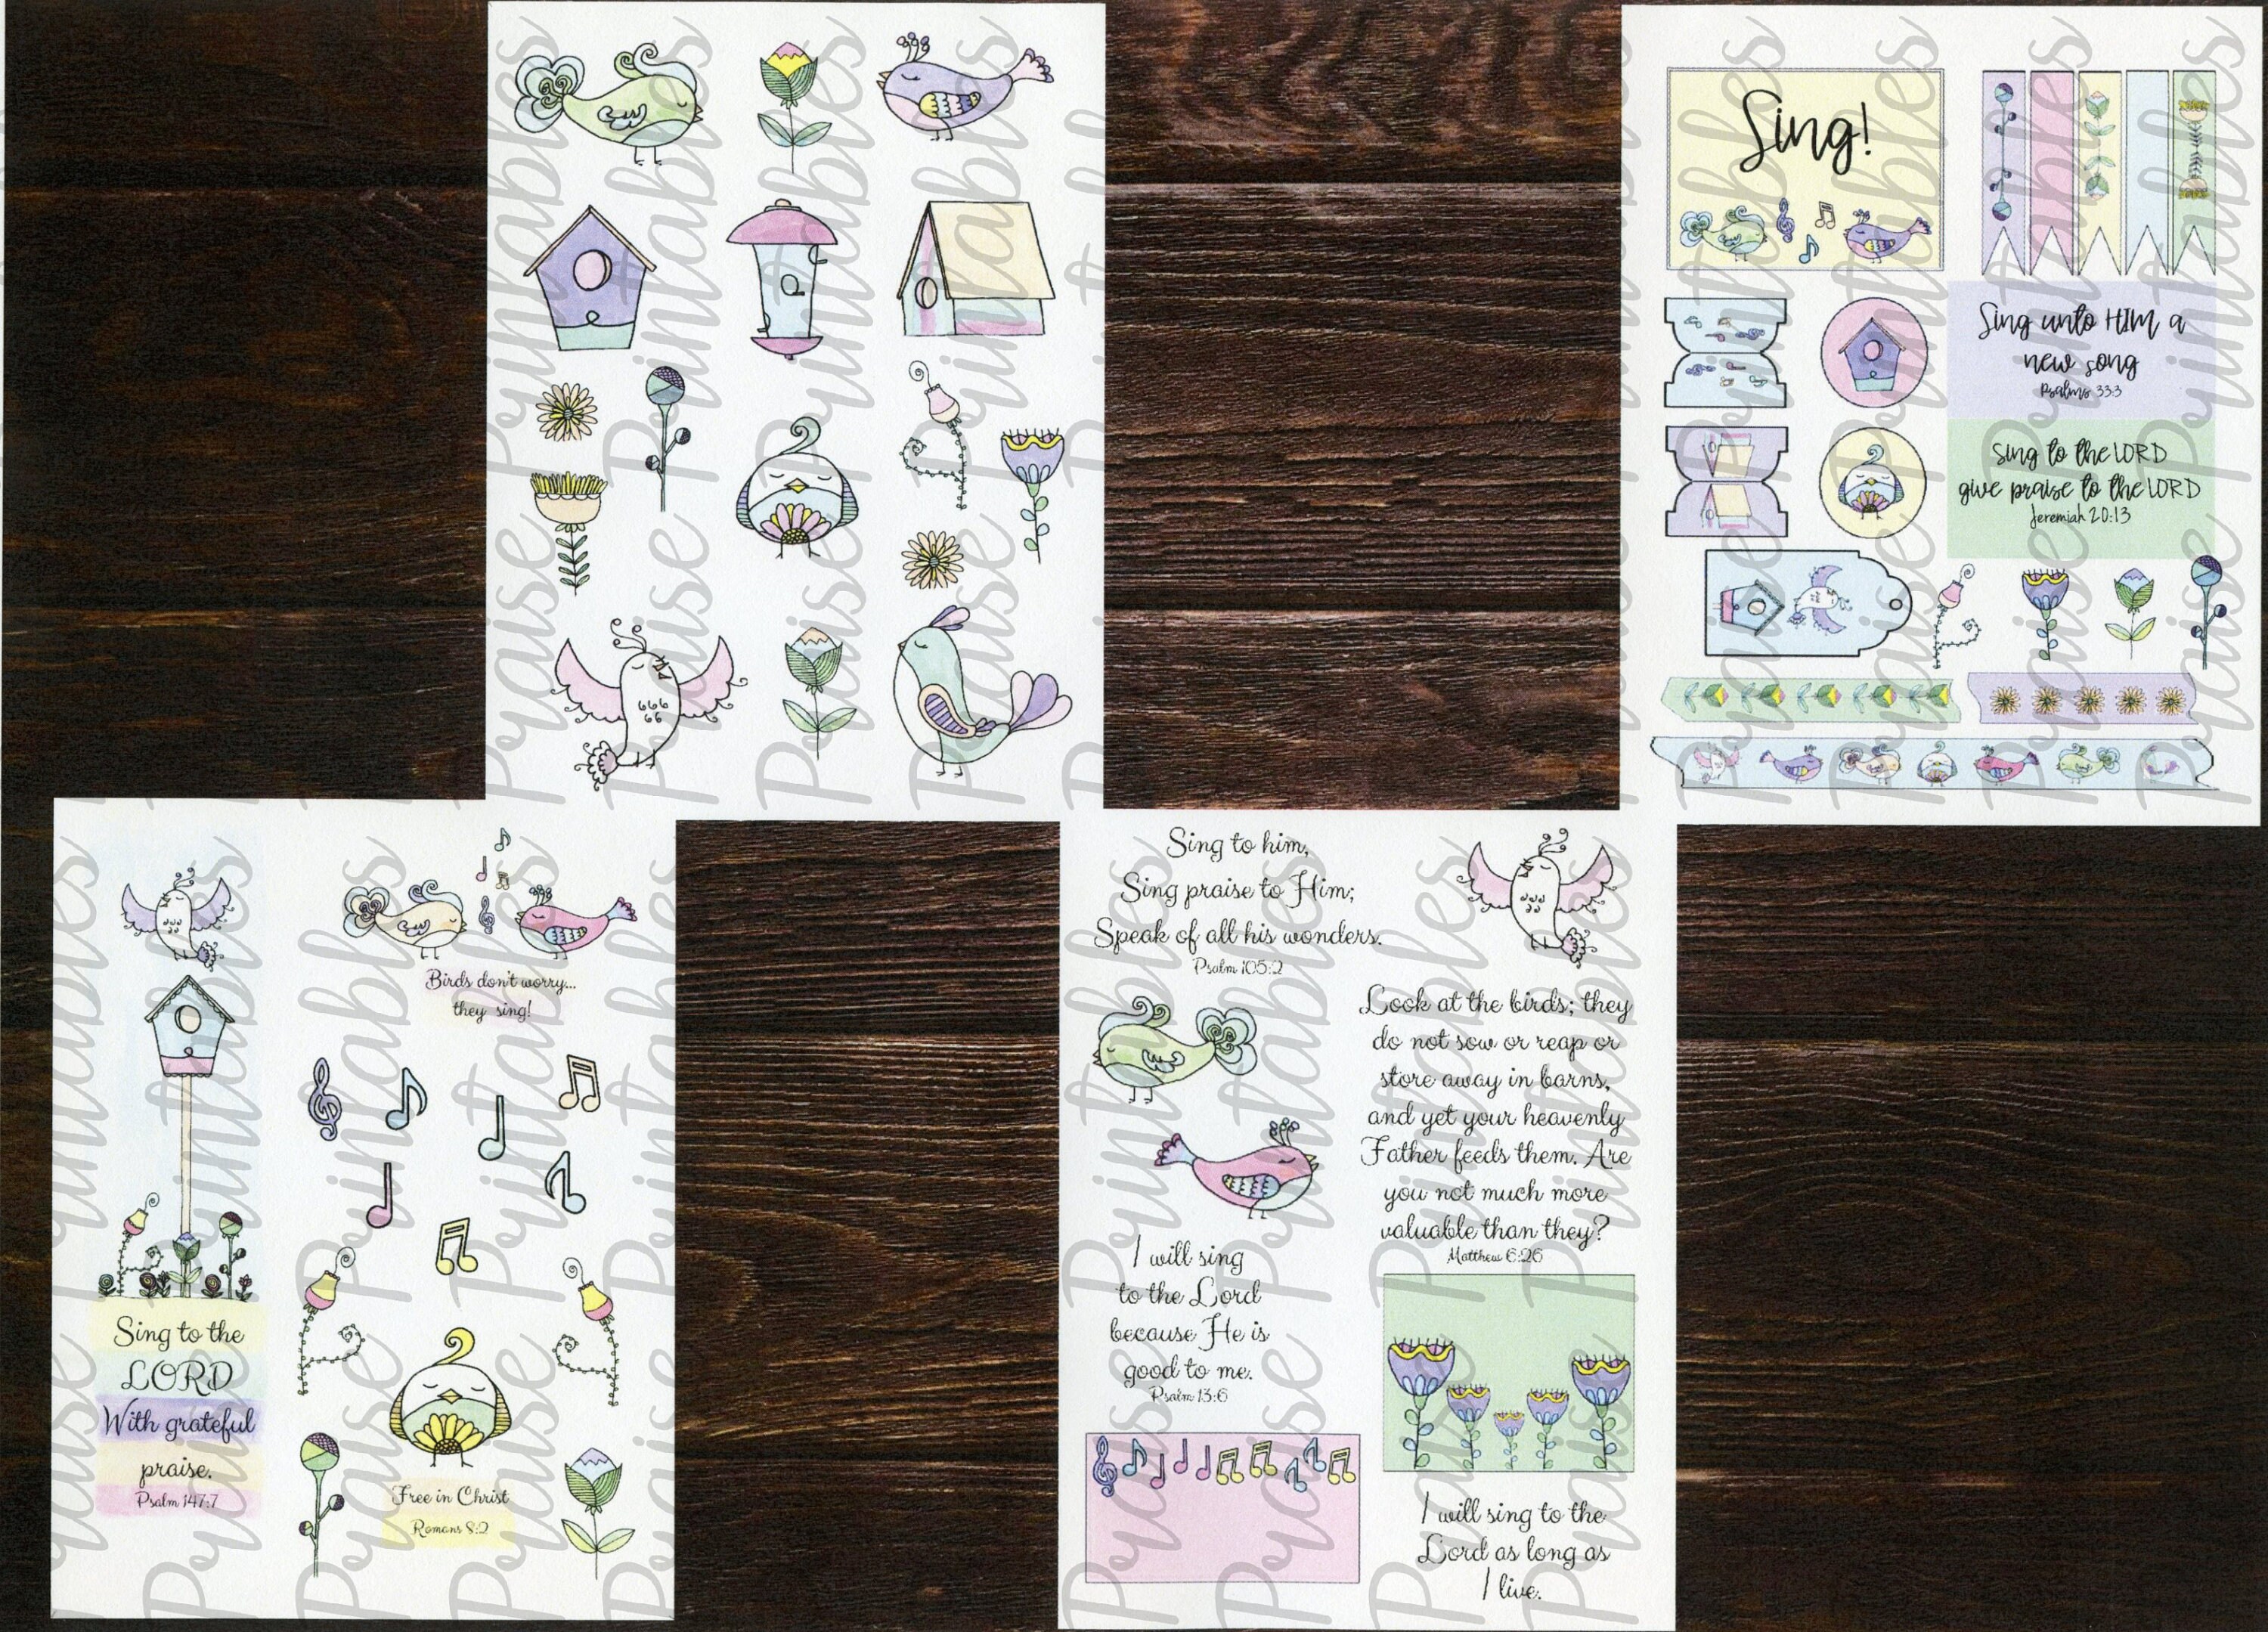 Sing!
Sing unto HIM a
new song
Psalms 33:3
Sing to the LORD
give praise to the LORD
Jeremiah 20:13
Birds don't worry...
they sing!
Sing to the
LORD
With grateful
praise.
Psalm 147:7
Free in Christ
Romans 8:2
Sing to him,
Sing praise to Him;
Speak of all his wonders.
Psalm 105:2
Look at the birds; they
do not sow or reap or
store away in barns,
and yet your heavenly
Father feeds them. Are
you not much more
valuable than they?
Matthew 6:26
I will sing
to the Lord
because He is
good to me.
Psalm 13:6
I will sing to the
Lord as long as
I live.
Praise Printables